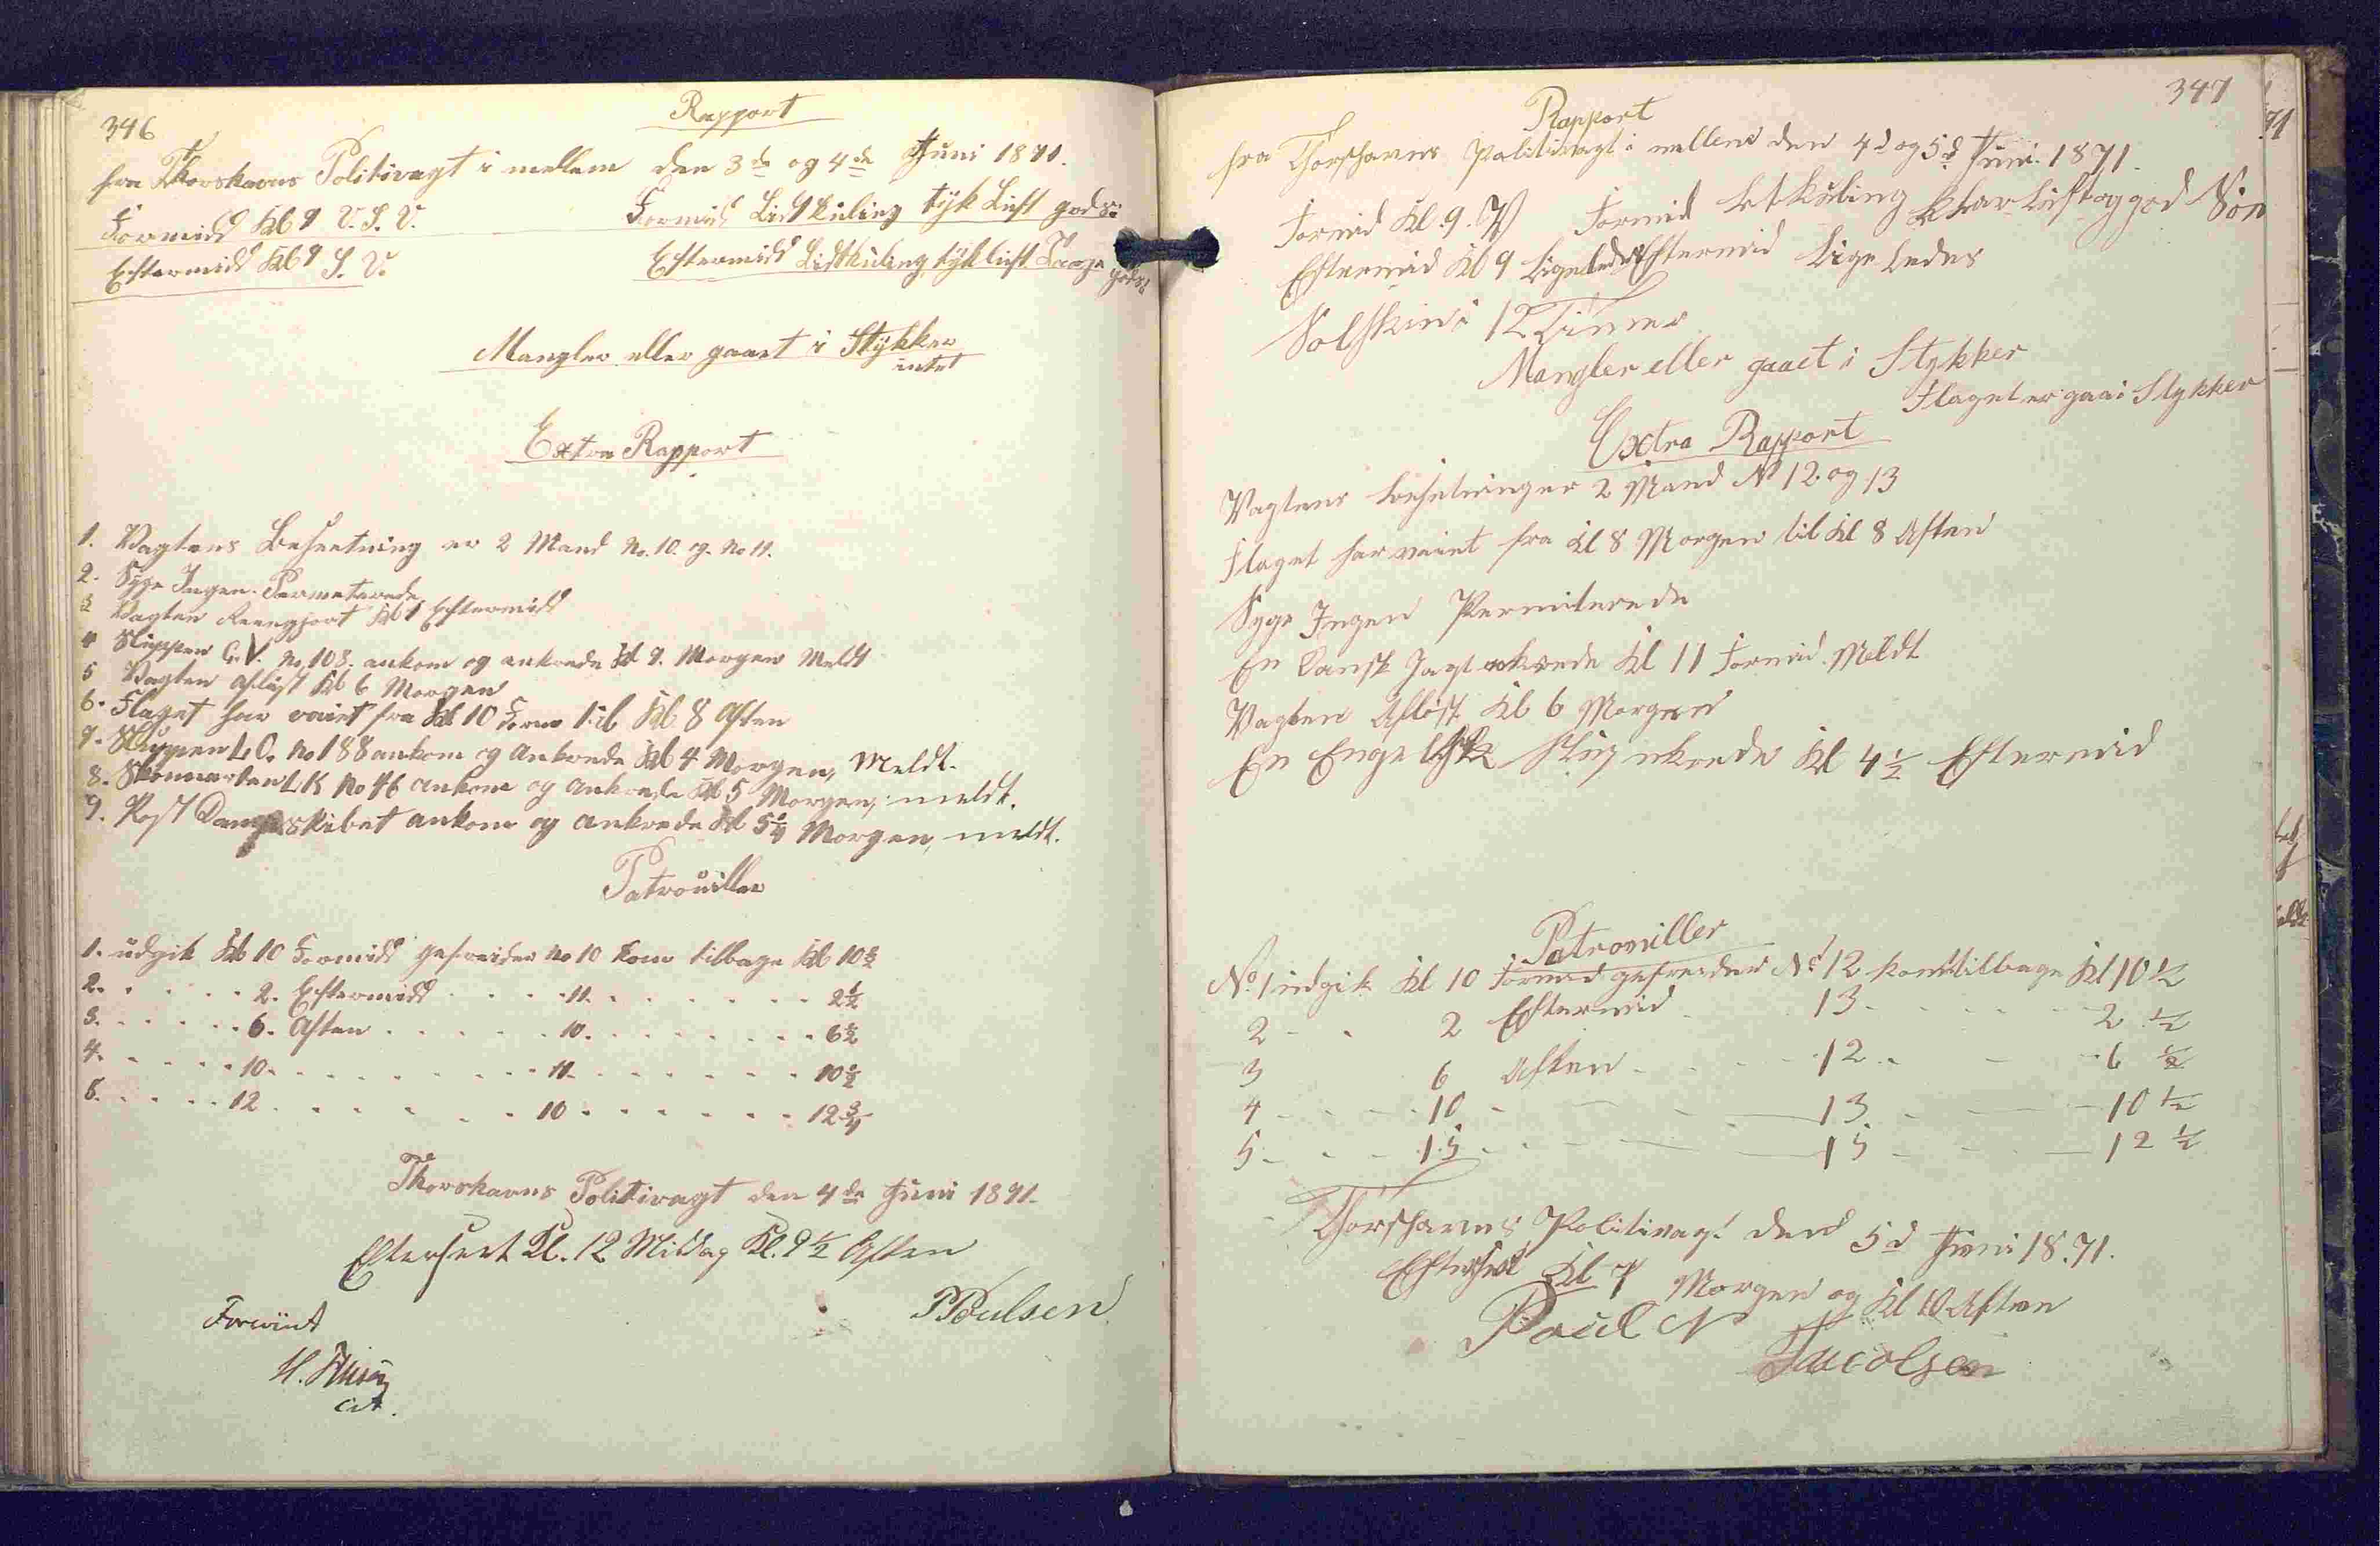 346
Rapport
fra Thorshavns Politivagt i mellem den 3de og 4de Juni 1871.
Formidd Kl 9 V. S. V. Formidd Lidt Kuling tyk Luft god Si
Eftermidd Kl 9 S. V. Eftermidd Lidt Kuling tyk luft Taage god Si
Mangler eller gaaet i Stykker
intet
Extra Rapport
1. Vagtens Besætning er 2 Mand No. 10. og No 11.
2. Syge Ingen. Permeterede
3 Vagten Reengjort Kl 1 Eftermidd
4 Sluppen G. V. No. 108. ankom og ankrede Kl 9. Morgen Meldt
5 Vagten Afløst Kl 6 Morgen
6. Flaget har vaiet fra Kl 10 Form til Kl 8 Aften
7. Sluppen L O. No 188 ankom og Ankrede Kl 4 Morgen, Meldt.
8. Skonnerten L K No 46 ankom og ankrede Kl 5 Morgen, meldt.
9. Post Dampskibet ankom og ankrede Kl 5¼ Morgen, meldt.
Patrouiller
1. udgik Kl 10 Formidd gefreider No 10 kom tilbage Kl 10½
2. . . . . . 2. Eftermidd . . . . 11. . . . . . . . 2½
3. . . . . . 6. Aften . . . . . 10. . . . . . . . . 6½
4. . . . . . 10. . . . . . . . . 11. . . . . . . . 10½
5. . . . . . 12 . . . . . . 10 . . . . . . . 12¾
Thorshavns Politivagt den 4de Juni 1871.
Efterseet Kl. 12 Middag Kl. 9½ Aften
P Poulsen
Forevist
cst.
347
Rapport
fra Thorshavns Politivagt i mellem den 4d og 5d Juni. 1871.
Formid Kl. 9. V Formid Let Kuling Klar Luft og god Siø
Eftermid Kl 9 Ligeledes Eftermid Lige Ledes
Solskin i 12 Timer
Mangler eller gaaet i Stykker
Flaget er gaai Stykker
Extra Rapport
Vagtens besetninger 2 Mand No 12. og 13
Flaget har vaiet fra Kl 8 Morgen til Kl 8 Aften
Syge Ingen Permiterede
En Dansk Jagt ankrede Kl 11 Formid. Meldt
Vagten Afløst Kl 6 Morgen
En Engelsk Slup nkrede Kl 4½ Eftermid
Patrouiller
No. 1 udgik Kl 10 Formid gefreider No 12 kom tilbage Kl 10½
2 - - 2 Eftermid - 13 - - - - 2 ½
3 6 Aften - - - 12 - - 6 ½
4 - - - 10 - - - 13 - - 10 ½
5 - - - 15 - - - 15 - - - 12 ½
Thorshavns Politivagt den 5d Juni 18.71.
Efterset Kl 7 Morgen og Kl 10 Aften
Poul N
Jacobsen